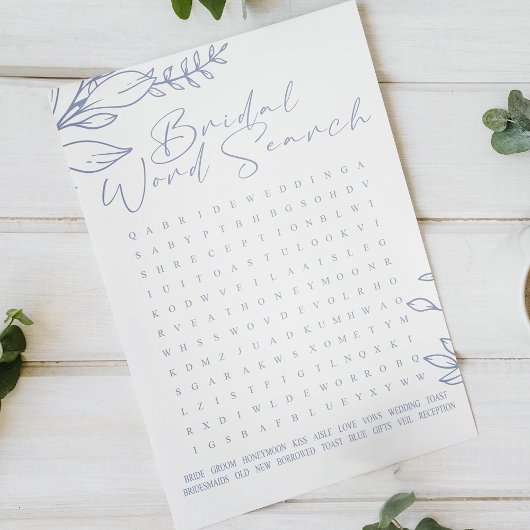 Bridal
Word Search
Q A B R I D E W E D D I N G A
S A B Y P T B H B G S O H D V
S H R E C E P T I O N B L W I
I U I T O A S T U L O O K V I
K O D W V E I L A A I S L E G
R V E A T H O N E Y M O O N R
W H S S W O V D E V O L R H O
K D M Z J U A D K U M H W A O
S G A R A K W S X O M E T Y M
L Z I S T F I G T L N Q X K I
R X D I W L D E W O R R O B Q
I G S B A F B L U E Y X Y W W
BRIDE GROOM HONEYMOON KISS AISLE LOVE VOWS WEDDING TOAST
BRIDESMAIDS OLD NEW BORROWED TOAST BLUE GIFTS VEIL RECEPTION